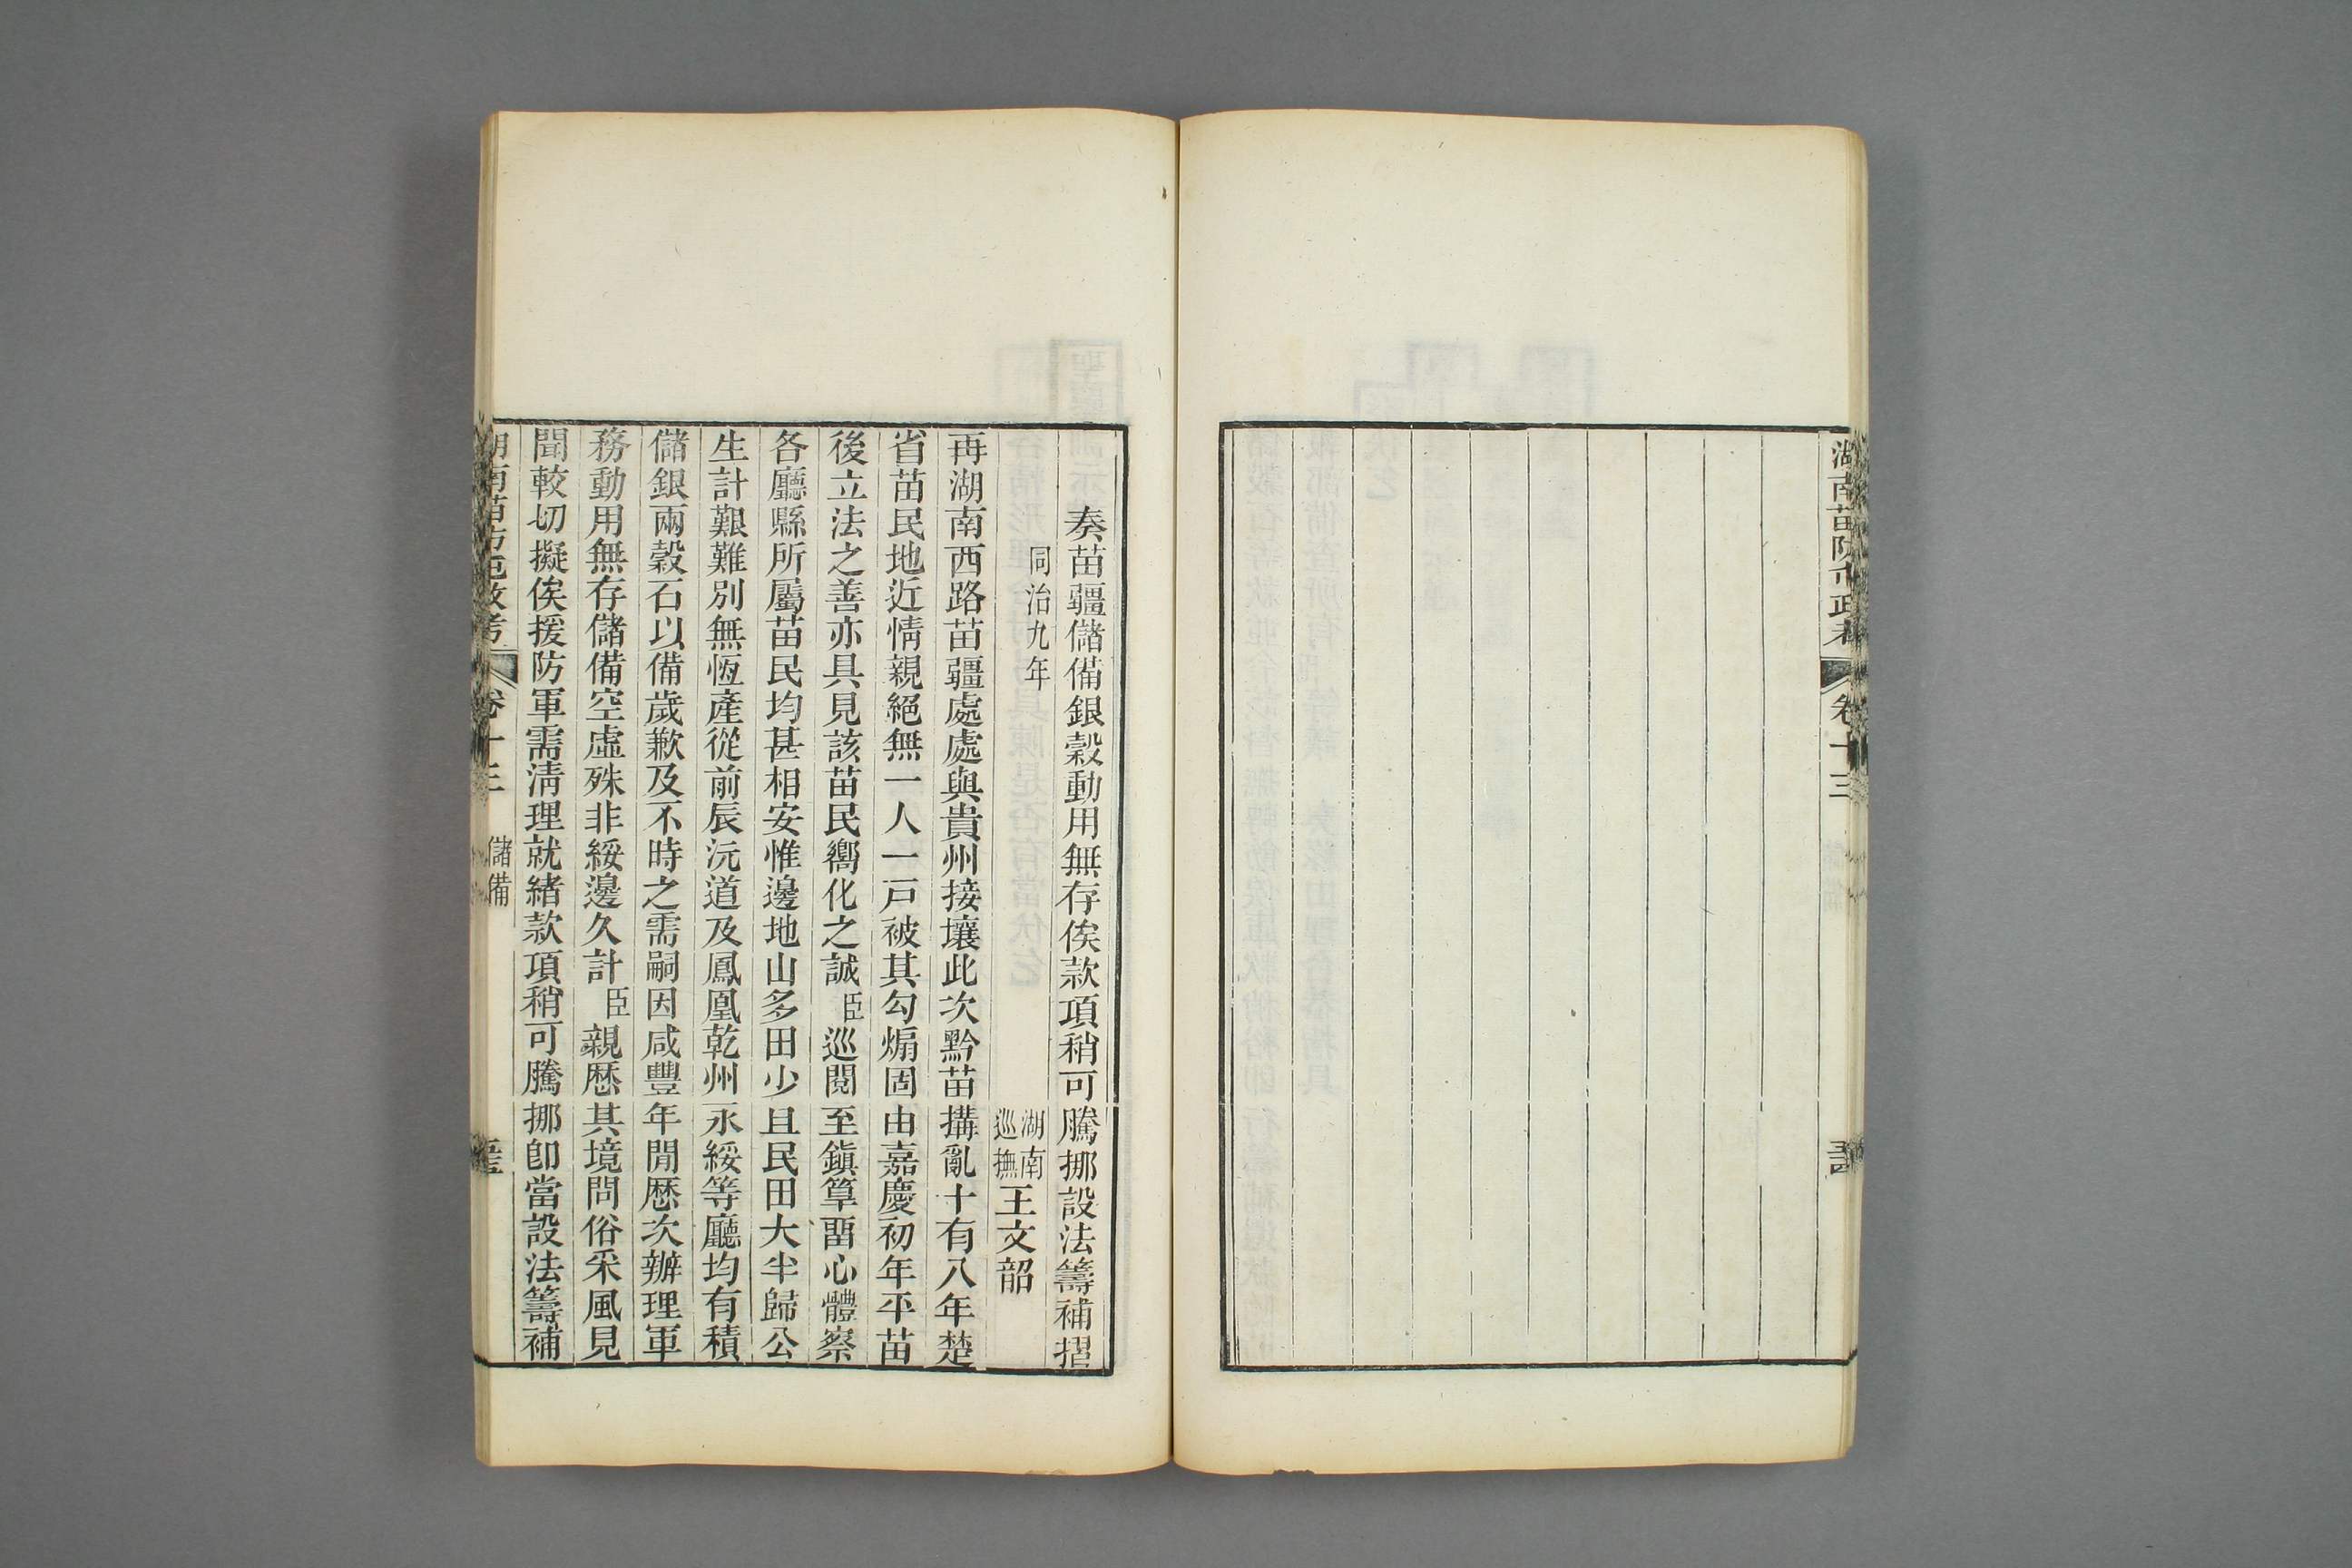 湖南苗防屯政考
卷十三
奏苗疆儲備銀穀動用無存俟款項稍可騰挪設法籌補摺
同治九年
湖南巡撫王文韶
再湖南西路苗疆處處與貴州接壤此次黔苗搆亂十有八年楚
省苗民地近情親絕無一人一戸被其勾煽固由嘉慶初年平苗
後立法之善亦具見該苗民嚮化之誠臣巡閱至鎭筸畱心體察
各廳縣所屬苗民均甚相安惟邊地山多田少且民田大半歸公
生計艱難別無恆產從前辰沅道及鳳凰乾州永綏等廳均有積
儲銀兩穀石以備歲歉及不時之需嗣因咸豐年閒歷次辦理軍
務動用無存儲備空虛殊非綏邊久計臣親歷其境問俗采風見
聞較切擬俟援防軍需清理就緒款項稍可騰挪卽當設法籌補
湖南苗防屯政考
卷十三
儲備